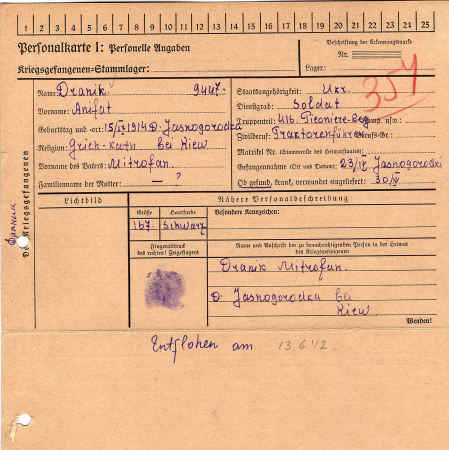 1 2 3 4 5 6 7 8 9 10 11 12 13 14 15 16 17 18 19 20 21 22 23 24 25
Personalkarte I: Personelle Angaben
Kriegsgefangenen-Stammlager:
Beschriftung der Erkennungsmarke
Nr.
Lager:
354
Des Kriegsgefangenen
Name: Dranik 9447.
Vorname: Anifat
Geburtstag und -ort: 15/IV 1914 D. Jasnogorodka
Religion: Griech-Kath bei Kiew
Vorname des Vaters: Mitrofan.
Familienname der Mutter: — "
Staatsangehörigkeit: Ukr.
Dienstgrad: Soldat
Truppenteil: 416. Pionier-Reg. Kom. usw.:
Zivilberuf: Traktorenführer Berufs-Gr.:
Matrikel Nr. (Stammrolle des Heimatstaates):
Gefangennahme (Ort und Datum): 23/IX Jasnogorodka
Ob gesund, krank, verwundet eingeliefert: 30/IX
Lichtbild
Nähere Personalbeschreibung
Größe
Haarfarbe
Besondere Kennzeichen:
167
Schwarz
Fingerabdruck
des rechten! Zeigefingers
Name und Anschrift der zu benachrichtigenden Person in der Heimat
des Kriegsgefangenen
Dranik Mitrofan.
D. Jasnogorodka bei
Kiew
Wenden!
Entflohen am 13.6.42.